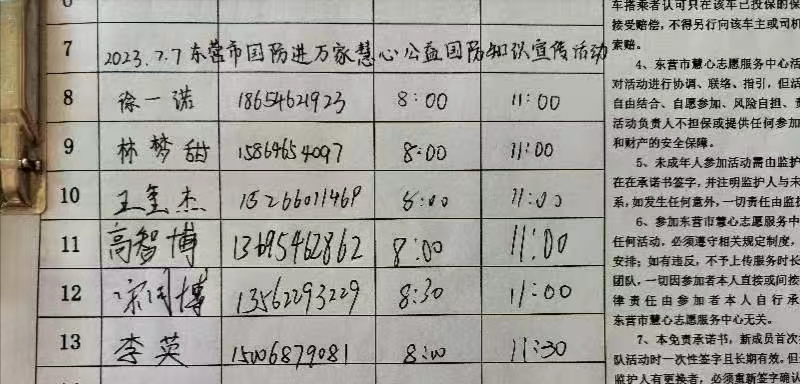 7 2023.7.7东营市国防进万家慧心公益国防知识宣传活动
8 徐一诺 18654621923 8:00 11:00
9 林梦甜 15864654097 8:00 11:00
10 王奎杰 15266011469 8:00 11:00
11 高智博 13695462862 8:00 11:00
12 宋 博 13562293229 8:30 11:00
13 李英 15006879081 8:00 11:30
车搭乘者认可只在该车已投保的保
接受赔偿，不得另行向该车主或司机
索赔。
4、东营市慧心志愿服务中心活
对活动进行协调、联络、指引，但活
自由结合、自愿参加、风险自担、责
活动负责人不担保或提供任何参加
和财产的安全保障。
5、未成年人参加活动需由监护
在在承诺书签字，并注明监护人与未
系，如发生任何意外，一切责任由监护
6、参加东营市慧心志愿服务中
任何活动，必须遵守相关规定制度，
安排；如有违反，不予上传服务时长
团队，一切因参加者本人直接或间接
律责任由参加者本人自行承
东营市慧心志愿服务中心无关。
7、本免责承诺书，新成员首次
队活动时一次性签字且长期有效。但
监护人有更换者，必须重新签字确认